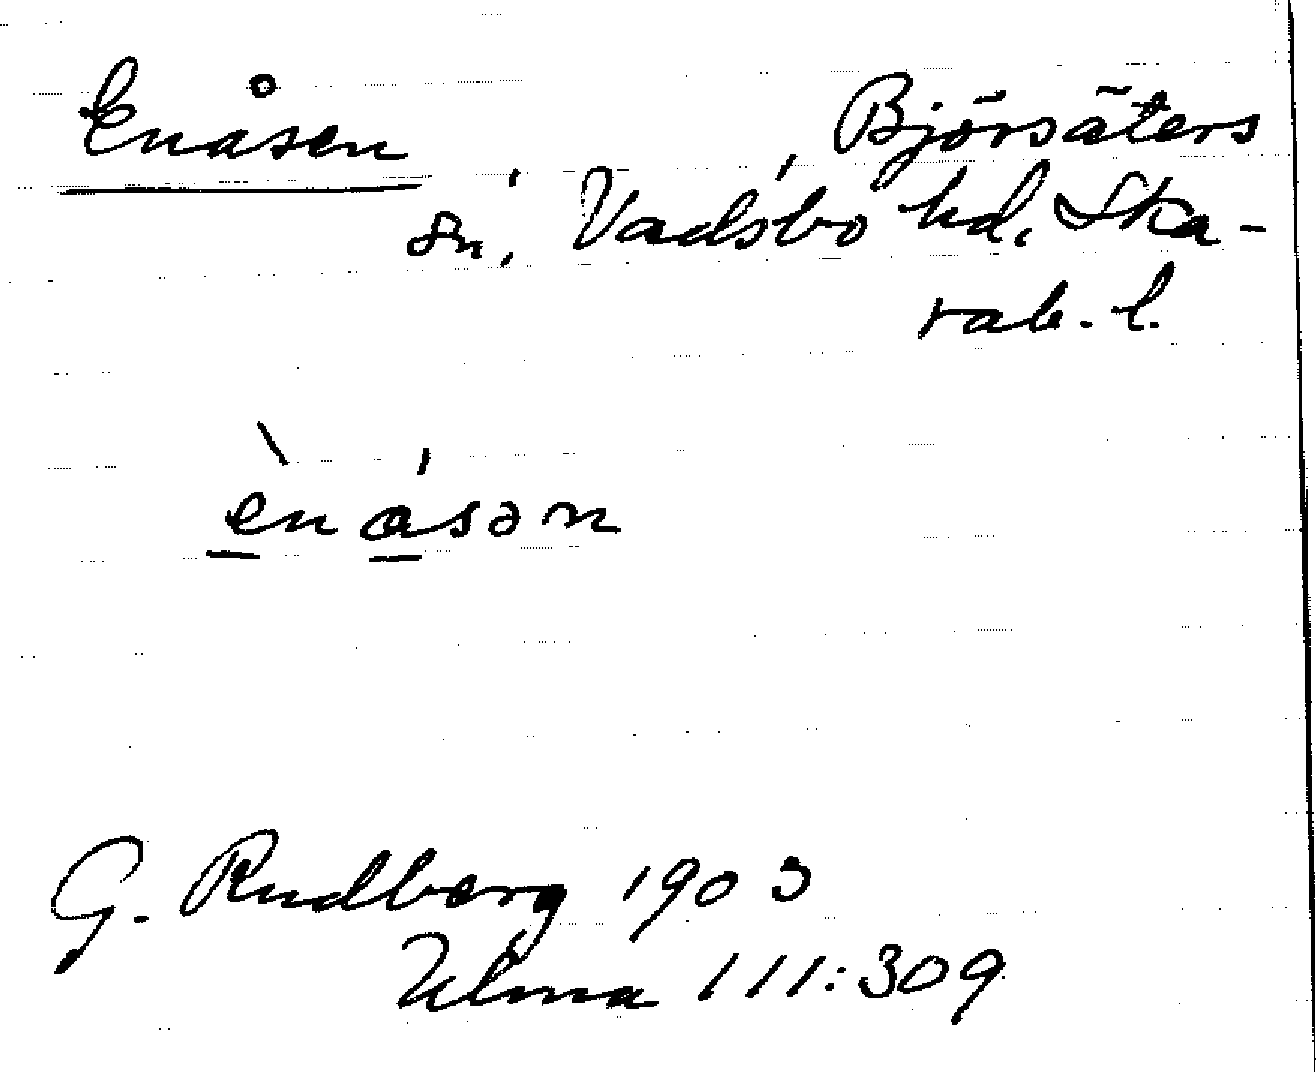 Enåsen Björsäters
sn, Vadsbo hd, Ska-
rab. l.
èn åsən
G. Rudberg 1903
Ulma 111:309